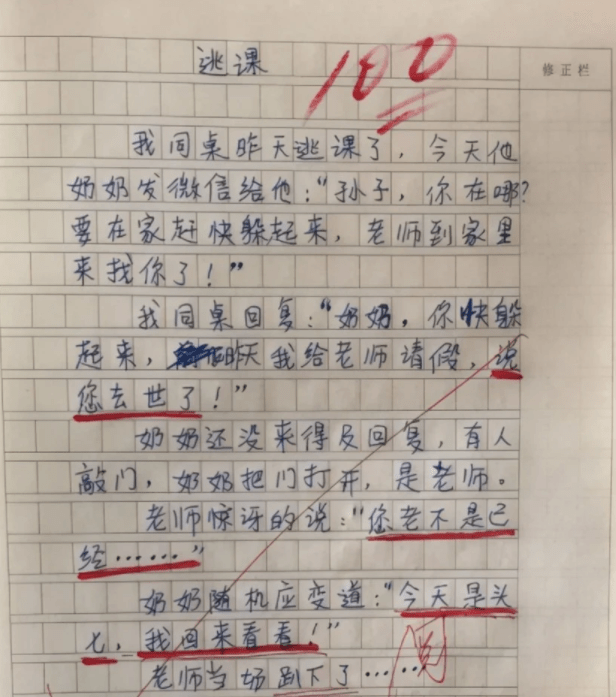 逃课
100
修正栏
我同桌昨天逃课了，今天他
奶奶发微信给他：“孙子，你在哪？
要在家赶快躲起来，老师到家里
来找你了！”
我同桌回复：“奶奶，你快躲
起来，昨天我给老师请假，说
您去世了！”
奶奶还没来得及回复，有人
敲门，奶奶把门打开，是老师。
老师惊讶的说：“您老不是已
经……”
奶奶随机应变道：“今天是头
七，我回来看看！”
老师当场趴下了……